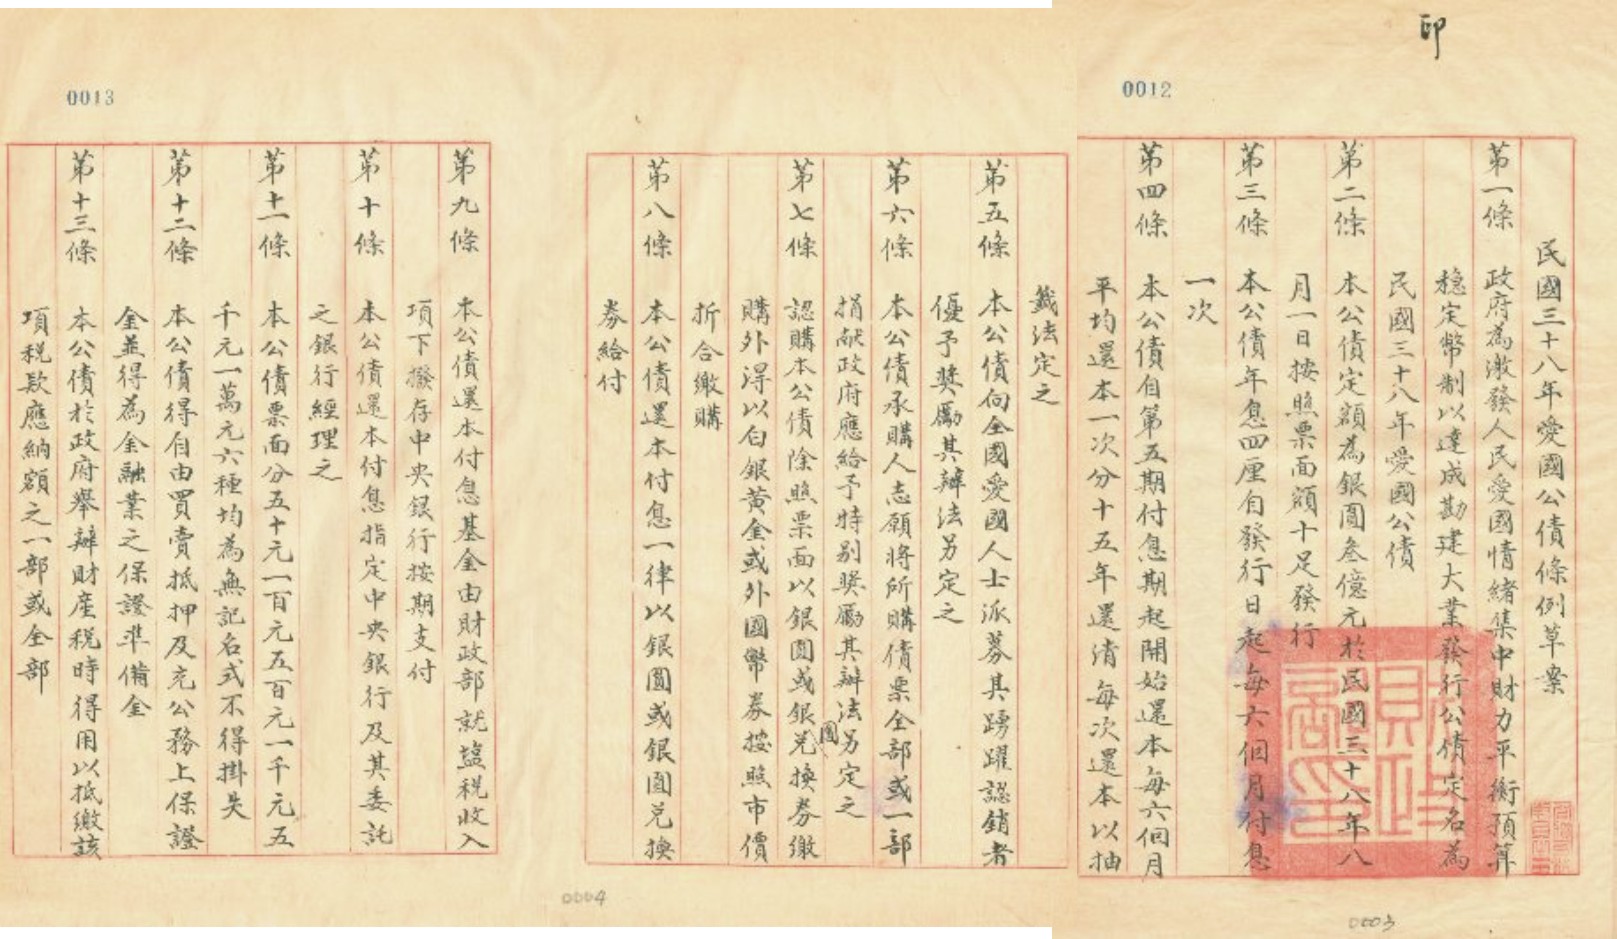 印
0012
民國三十八年愛國公債條例草案
第一條 政府為激發人民愛國情緒集中財力平衡預算
穩定幣制以達成勘建大業發行公債定名為
民國三十八年愛國公債
第二條 本公債定額為銀圓叁億元於民國三十八年八
月一日按照票面額十足發行
第三條 本公債年息四厘自發行日起每六個月付息
一次
第四條 本公債自第五期付息期起開始還本每六個月
平均還本一次分十五年還清每次還本以抽
籤法定之
第五條 本公債向全國愛國人士派募其踴躍認銷者
優予獎勵其辦法另定之
第六條 本公債承購人志願將所購債票全部或一部
捐献政府應給予特别獎勵其辦法另定之
第七條 認購本公債除照票面以銀圓或銀圓兑換券繳
購外得以白銀黃金或外國幣券按照市價
折合繳購
第八條 本公債還本付息一律以銀圓或銀圓兑換
券給付
第九條 本公債還本付息基金由財政部就盐税收入
項下撥存中央銀行按期支付
第十條 本公債還本付息指定中央銀行及其委託
之銀行經理之
第十一條 本公債票面分五十元一百元五百元一千元五
千元一萬元六種均為無記名式不得掛失
第十二條 本公債得自由買賣抵押及充公務上保證
金並得為金融業之保證準備金
第十三條 本公債於政府舉辦財產税時得用以抵繳該
項税款應納額之一部或全部
0013
0003
0004